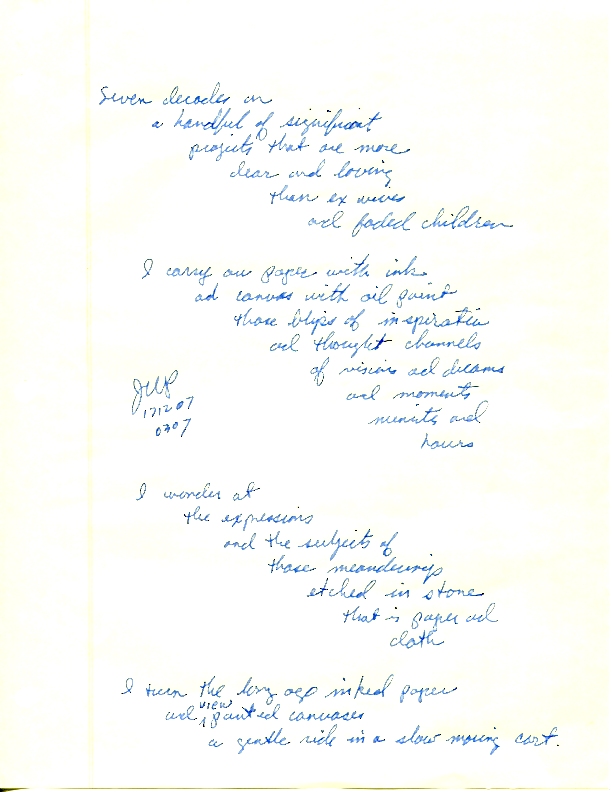 Seven decades on
a handful of significant
projects that are more
dear and loving
than ex wives
and faded children
I carry on paper with ink
and canvas with oil paint
those blips of inspiration
and thought channels
of visions and dreams
and moments
minuits and
hours
JWP
171207
0307
I wonder at
the expressions
and the subjects of
those meanderings
etched in stone
that is paper and
cloth
I turn the long ago inked paper
and view painted canvases
a gentle ride in a slow moving cart.